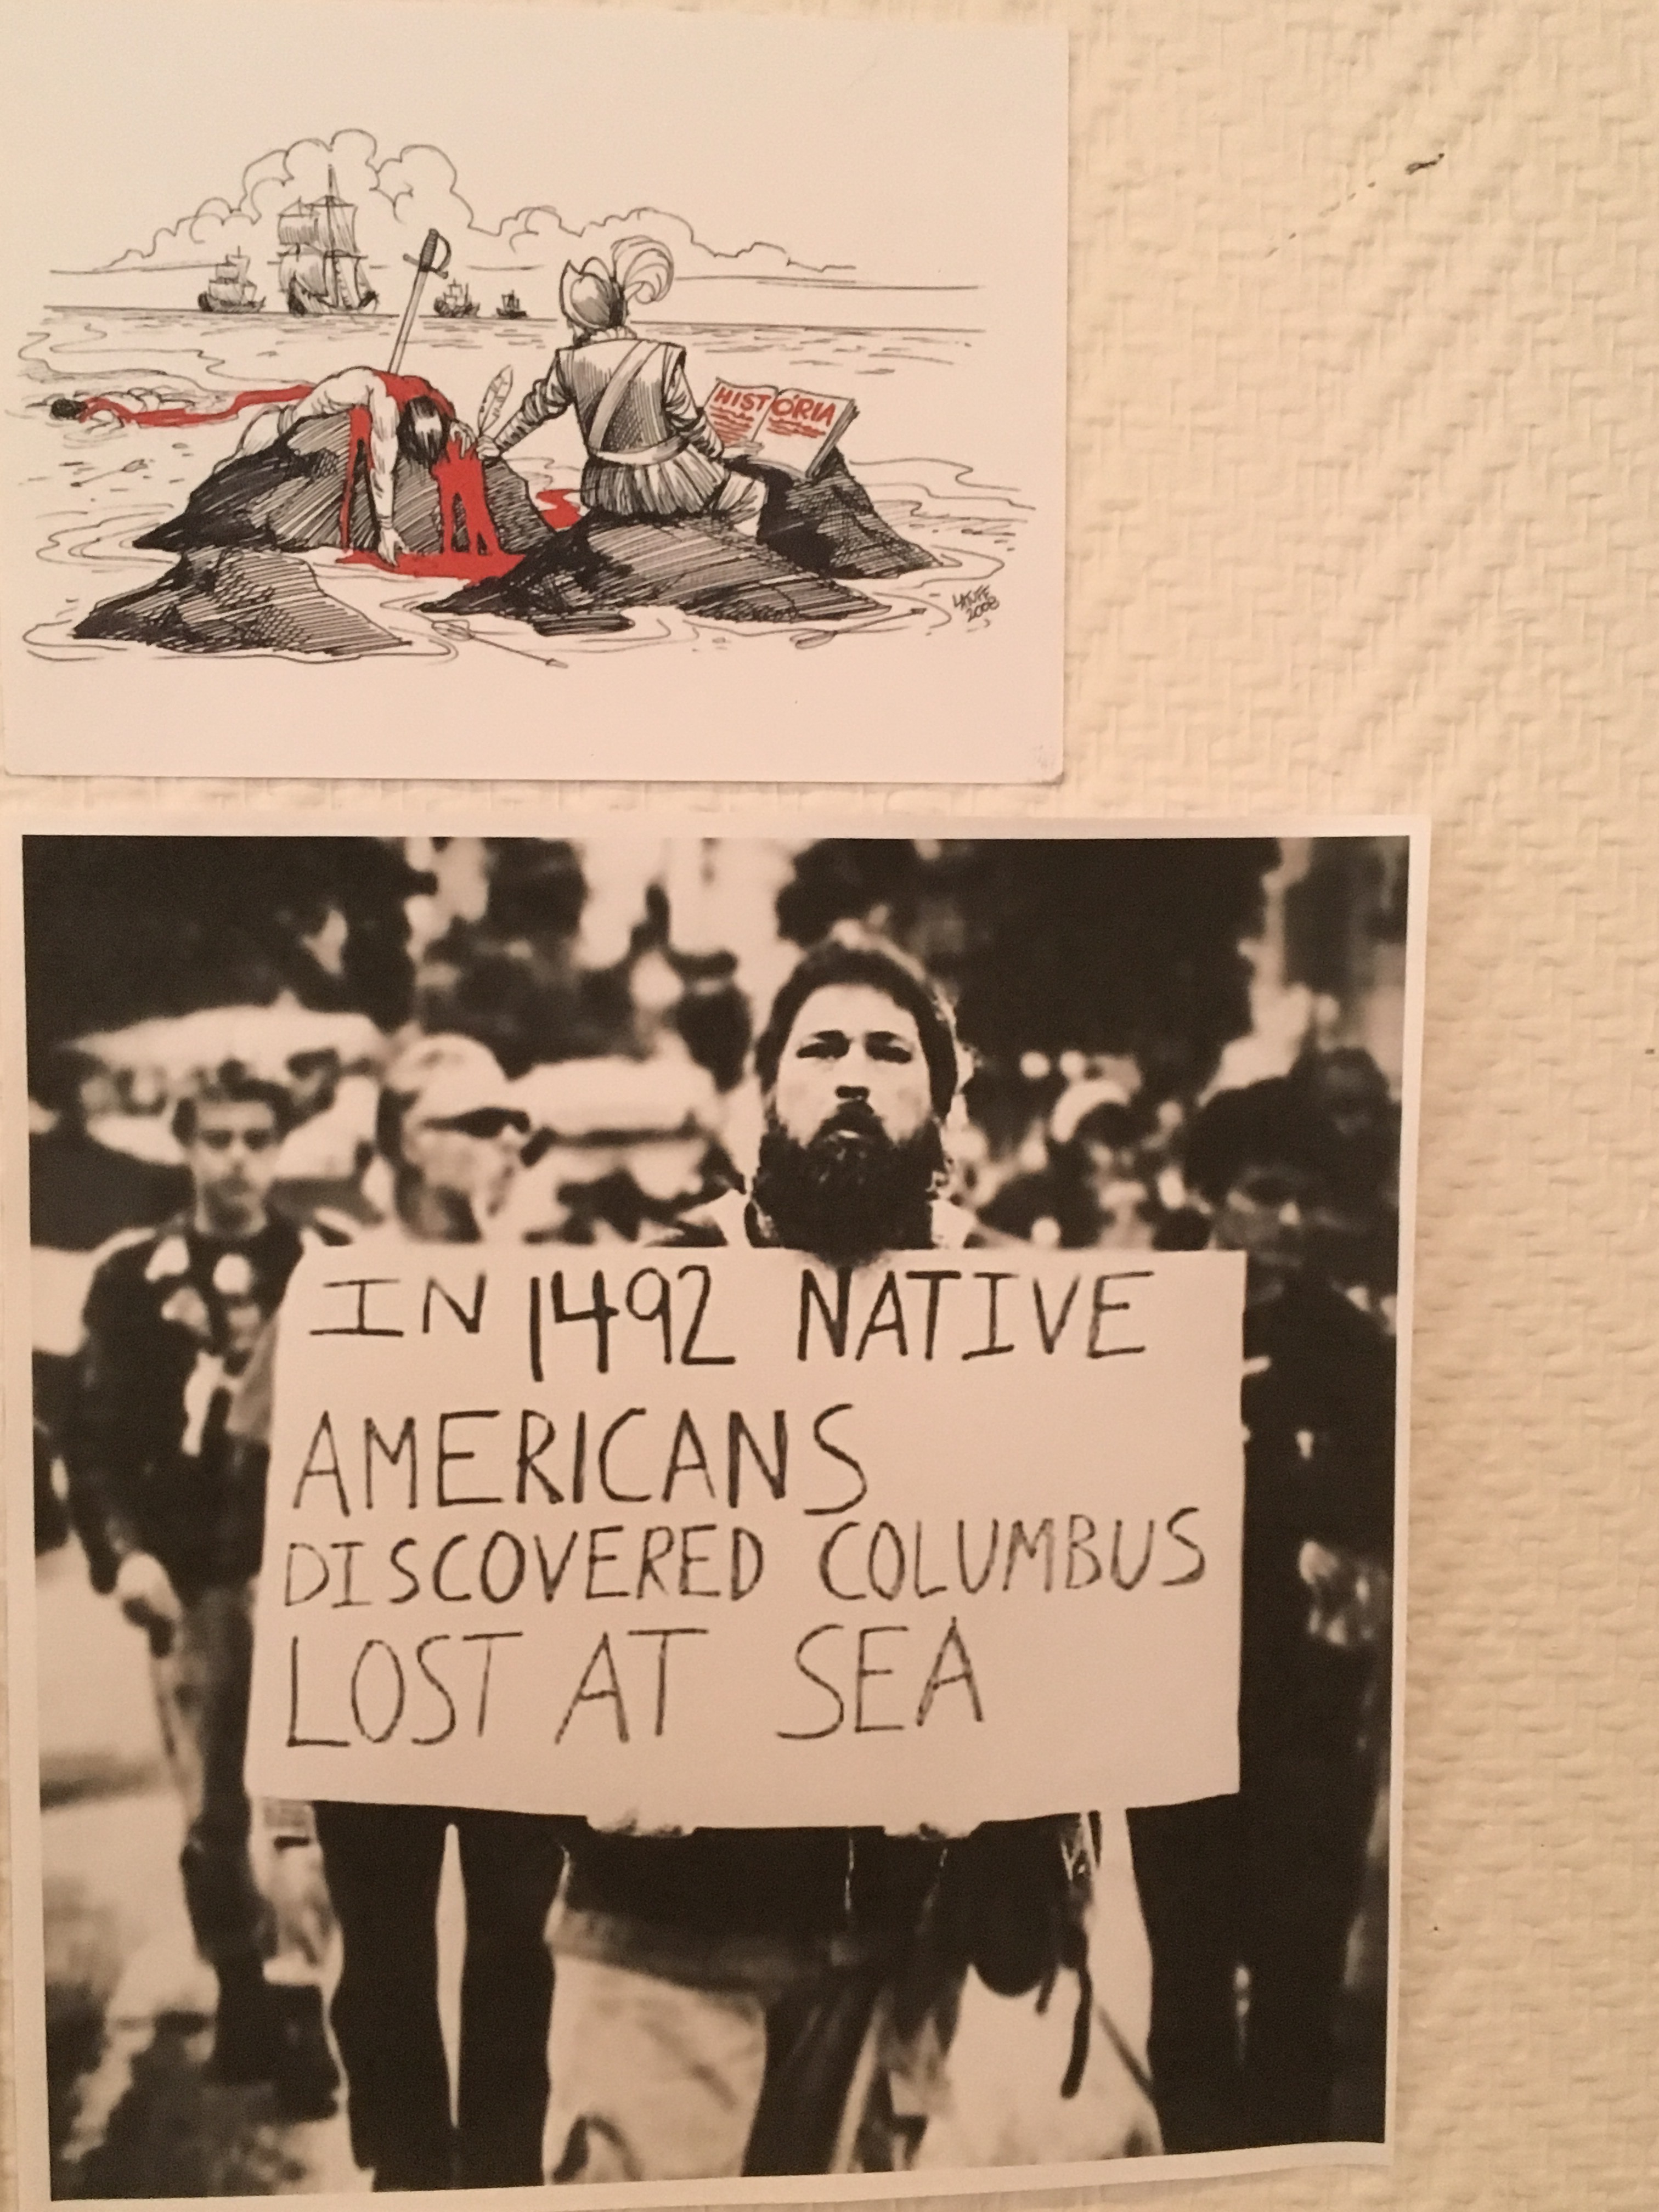 HISTÓRIA
LATUFF
2008
IN 1492 NATIVE
AMERICANS
DISCOVERED COLUMBUS
LOST AT SEA